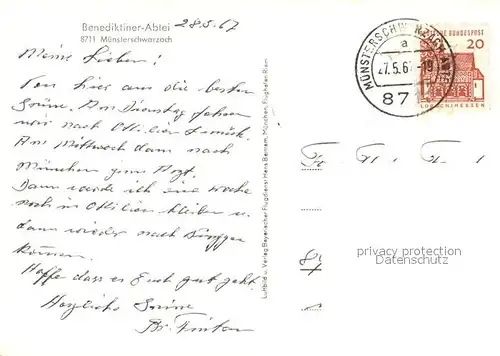 Benediktiner-Abtei
8711 Münsterschwarzach
28.5.67
Meine Lieben!
Von hier aus die besten
Grüße. Am Dienstag fahren
wir nach Ottilien zurück.
Am Mittwoch dann nach
München zum Arzt.
Dann werde ich eine Woche
noch in Ottilien bleiben u.
dann wieder nach
können.
Hoffe dass es Euch gut geht.
Herzliche Grüße
Br.
Luftbild u. Verlag Bayerischer Flugdienst Hans Bertram, München, Flughafen Riem
a
27.5.67-19
87
DEUTSCHE BUNDESPOST
20
LORSCH/HESSEN
privacy protection
watermark